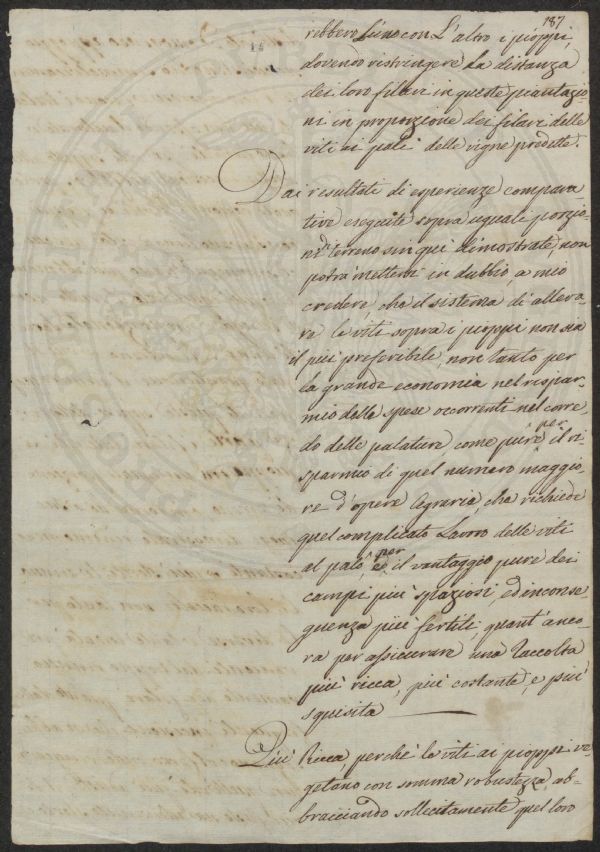 187
rebbero l'uno con L'altro i pioppi,
dovendo ristringere la distanza
dei loro filari in queste piantazio-
ni in proporzione dei filari delle
viti ai pali delle vigne predette.
Dai resultati di esperienze compara-
tive eseguite sopra eguale porzio-
ne di terreno sin qui dimostrate, non
potrà mettersi in dubbio, a mio
credere, che il sistema di alleva-
re le viti sopra i pioppi non sia
il più preferibile, non tanto per
la grande economia nel rispar-
mio delle spese occorrenti nel corre-
do delle palature, come pure per il ri-
sparmio di quel numero maggio-
re d'opere Agrarie, che richiede
quel complicato Lavoro delle viti
al palo, e per il vantaggio pure dei
campi più spaziosi, ed in conse-
guenza più fertili, quant'anco-
ra per assicurare una Raccolta
più ricca, più costante, e più
squisita
Più Ricca, perchè le viti ai pioppi ve-
getano con somma robustezza, ab-
bracciando sollecitamente quel loro